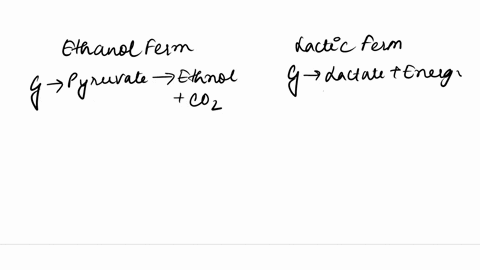 Ethanol Ferm
G → Pyruvate → Ethnol
+ CO2
Lactic Ferm
G → Lactate + Energy